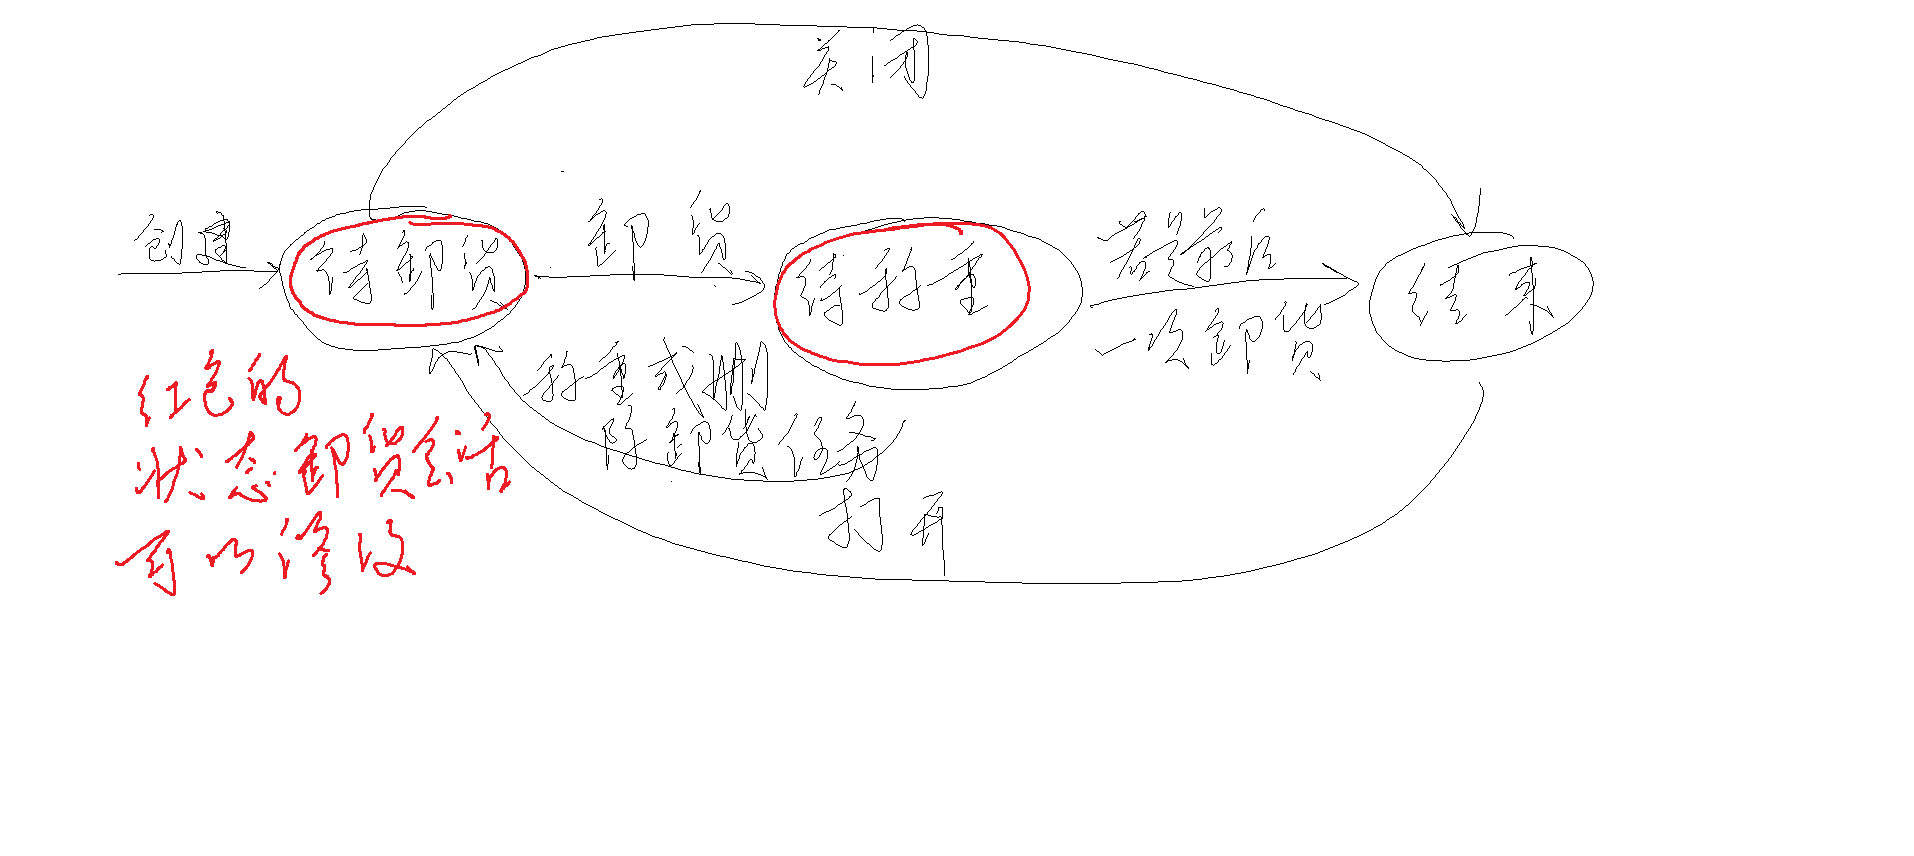 关闭
创建
待卸货
卸货
待称重
若是最后
一次卸货
结束
称重或删
除卸货任务
打开
红色的
状态卸货会话
可以修改